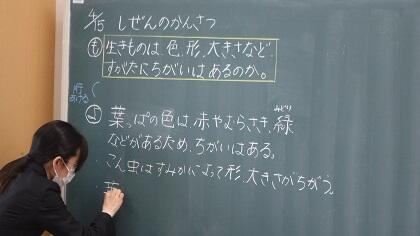 4/15 しぜんのかんさつ
も 生きものは、色、形、大きさなど、
すがたにちがいはあるのか。
1行あける
よ 葉っぱの色は、赤やむらさき、緑
みどり
などがあるため、ちがいはある。
・こん虫はすみかによって形、大きさがちがう。
・葉